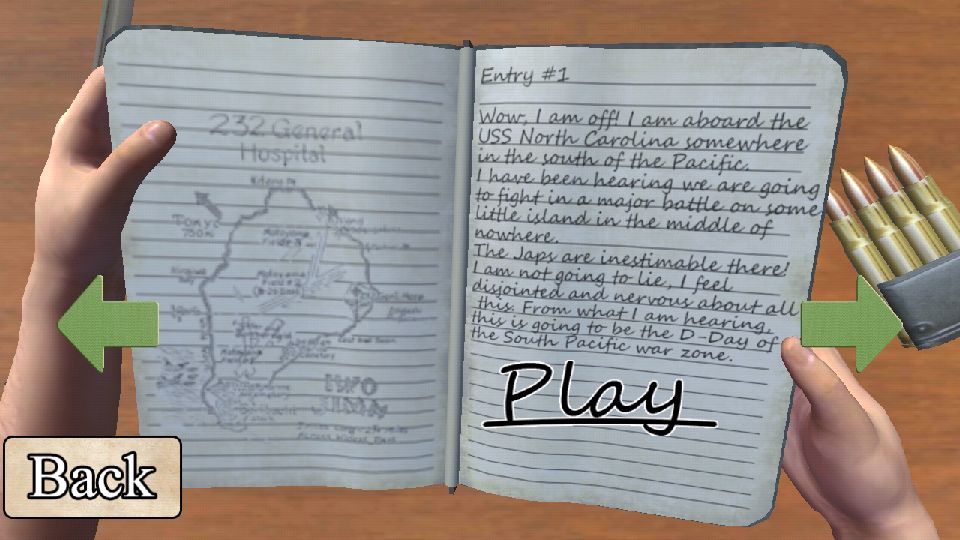 232 General
Hospital
Entry #1
Wow, I am off! I am aboard the
USS North Carolina somewhere
in the south of the Pacific.
I have been hearing we are going
to fight in a major battle on some
little island in the middle of
nowhere.
The Japs are inestimable there!
I am not going to lie, I feel
disjointed and nervous about all
this. From what I am hearing,
this is going to be the D-Day of
the South Pacific war zone.
Play
Back